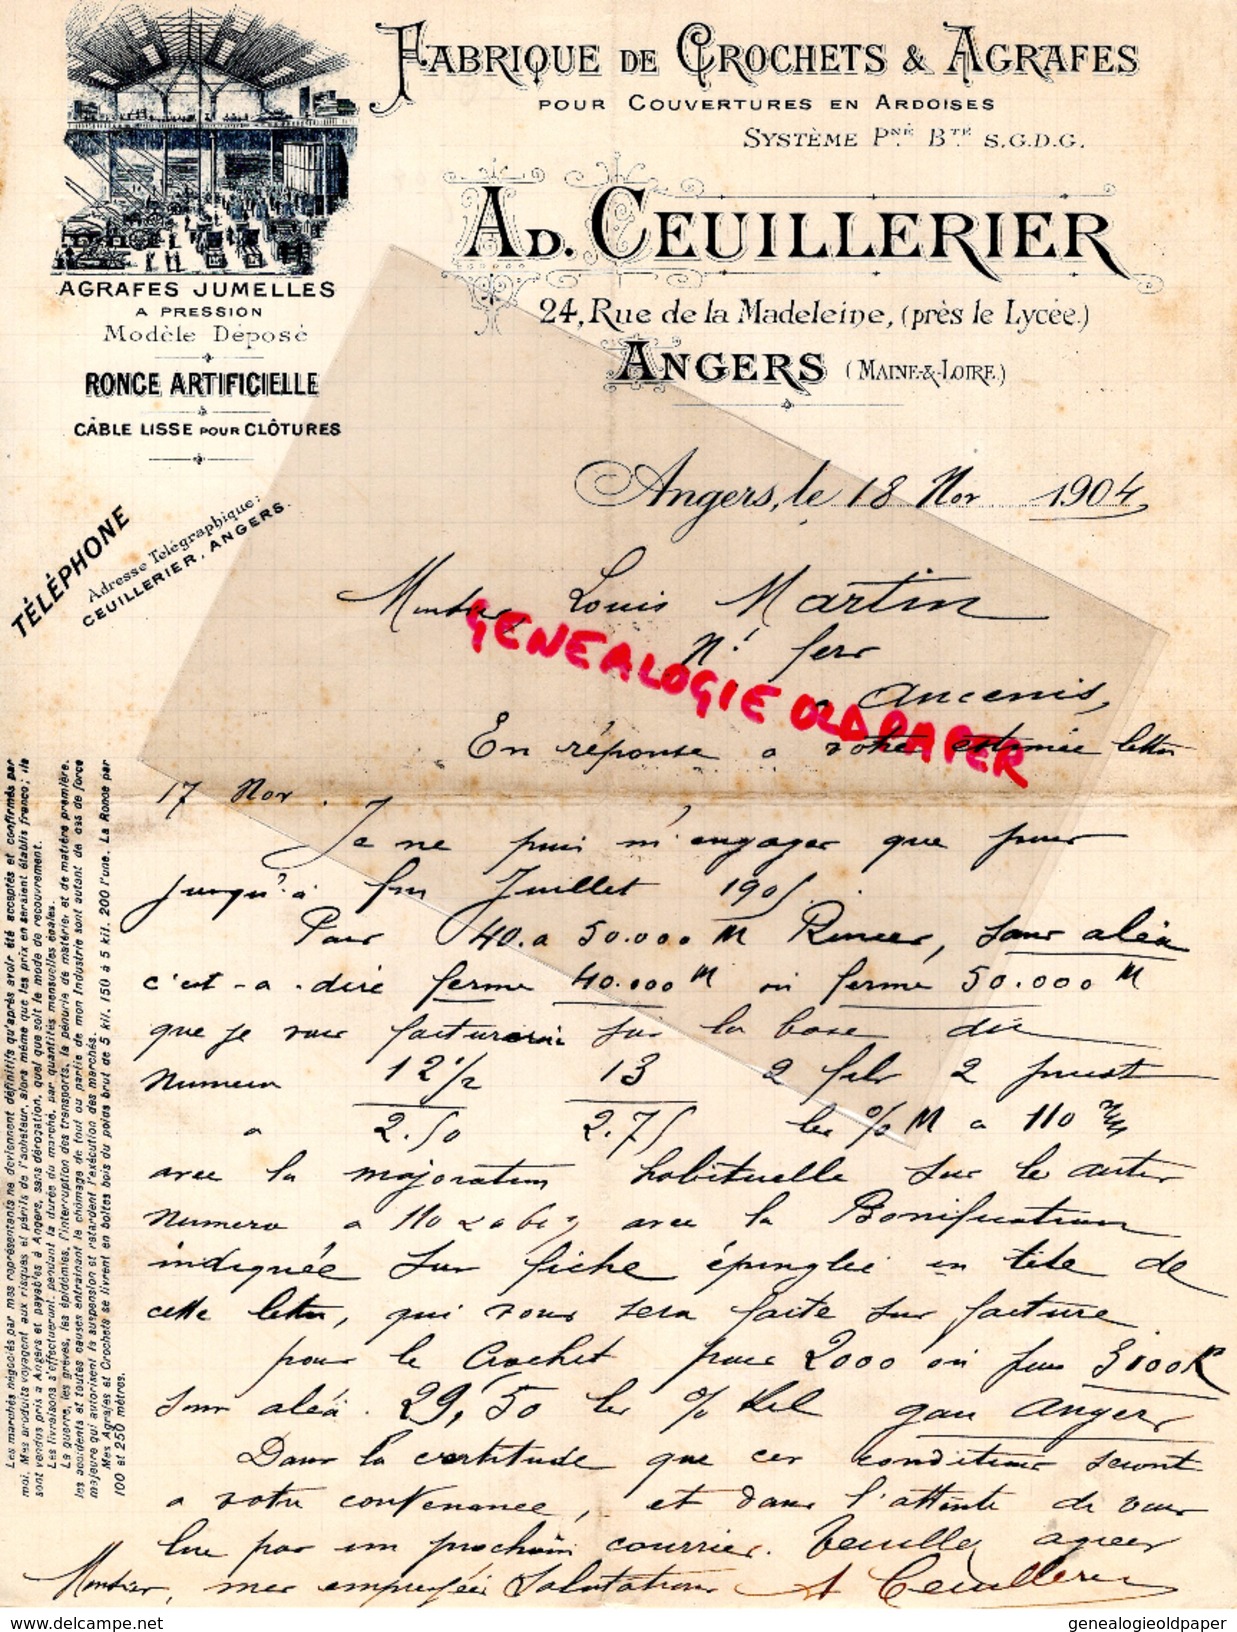 FABRIQUE DE CROCHETS & AGRAFES
POUR COUVERTURES EN ARDOISES
SYSTÈME PNÉ BTÉ S.G.D.G.
AD. CEUILLERIER
24, Rue de la Madeleine, (près le Lycée.)
ANGERS (MAINE-&-LOIRE)
AGRAFES JUMELLES
A PRESSION
Modèle Déposé
RONCE ARTIFICIELLE
CÂBLE LISSE POUR CLÔTURES
TÉLÉPHONE
Adresse Télégraphique:
CEUILLERIER, ANGERS.
Angers, le 18 Nov 1904
Monsieur Louis Martin
Nt fers
Ancenis,
GENEALOGIE OLD PAPER
En réponse a votre estimée lettre
17 Nov.
Je ne puis m'engager que pour
jusqu'à fin Juillet 1905.
Pour 40. a 50.000 M Ronces, sans aléa
c'est-a-dire ferme 40.000 M ou ferme 50.000 M
que je vous facturerai sur la base du
Numero 12 1/2 13 2 fils 2 
a 2.50 2.75 les % M a 110
avec la majoration habituelle sur le autres
numero a 110 avec la Bonification
indiquée sur fiche épinglée en tête de
cette lettre, qui vous sera faite sur facture
pour le Crochet pour 2000 ou pour 3000 K
sans aléa. 29,50 les % Kil gare Angers
Dans la certitude que ces conditions seront
a votre convenance, et dans l'attente de vous
lire par un prochain courrier. Veuillez agréer
Monsieur, mes empressées Salutations A Ceuillerier
Les marchés négociés par mes représentants ne deviennent définitifs qu'après avoir été acceptés et confirmés par
moi. Mes produits voyagent aux risques et périls de l'acheteur, alors même que les prix en seraient établis franco; ils
sont vendus pris à Angers et payables à Angers, sans dérogation, quel que soit le mode de recouvrement.
Les livraisons s'effectueront, pendant la durée du marché, par quantités mensuelles égales.
La guerre, les grèves, les épidémies, l'interruption des transports, la pénurie de matériel et de matière première,
les accidents et toutes causes entraînant le chômage de tout ou partie de mon Industrie sont autant de cas de force
majeure qui autorisent la suspension et retardent l'exécution des marchés.
Mes Agrafes et Crochets se livrent en boîtes bois du poids brut de 5 kil. 150 à 5 kil. 200 l'une. La Ronce par
100 et 250 mètres.
www.delcampe.net
genealogieoldpaper